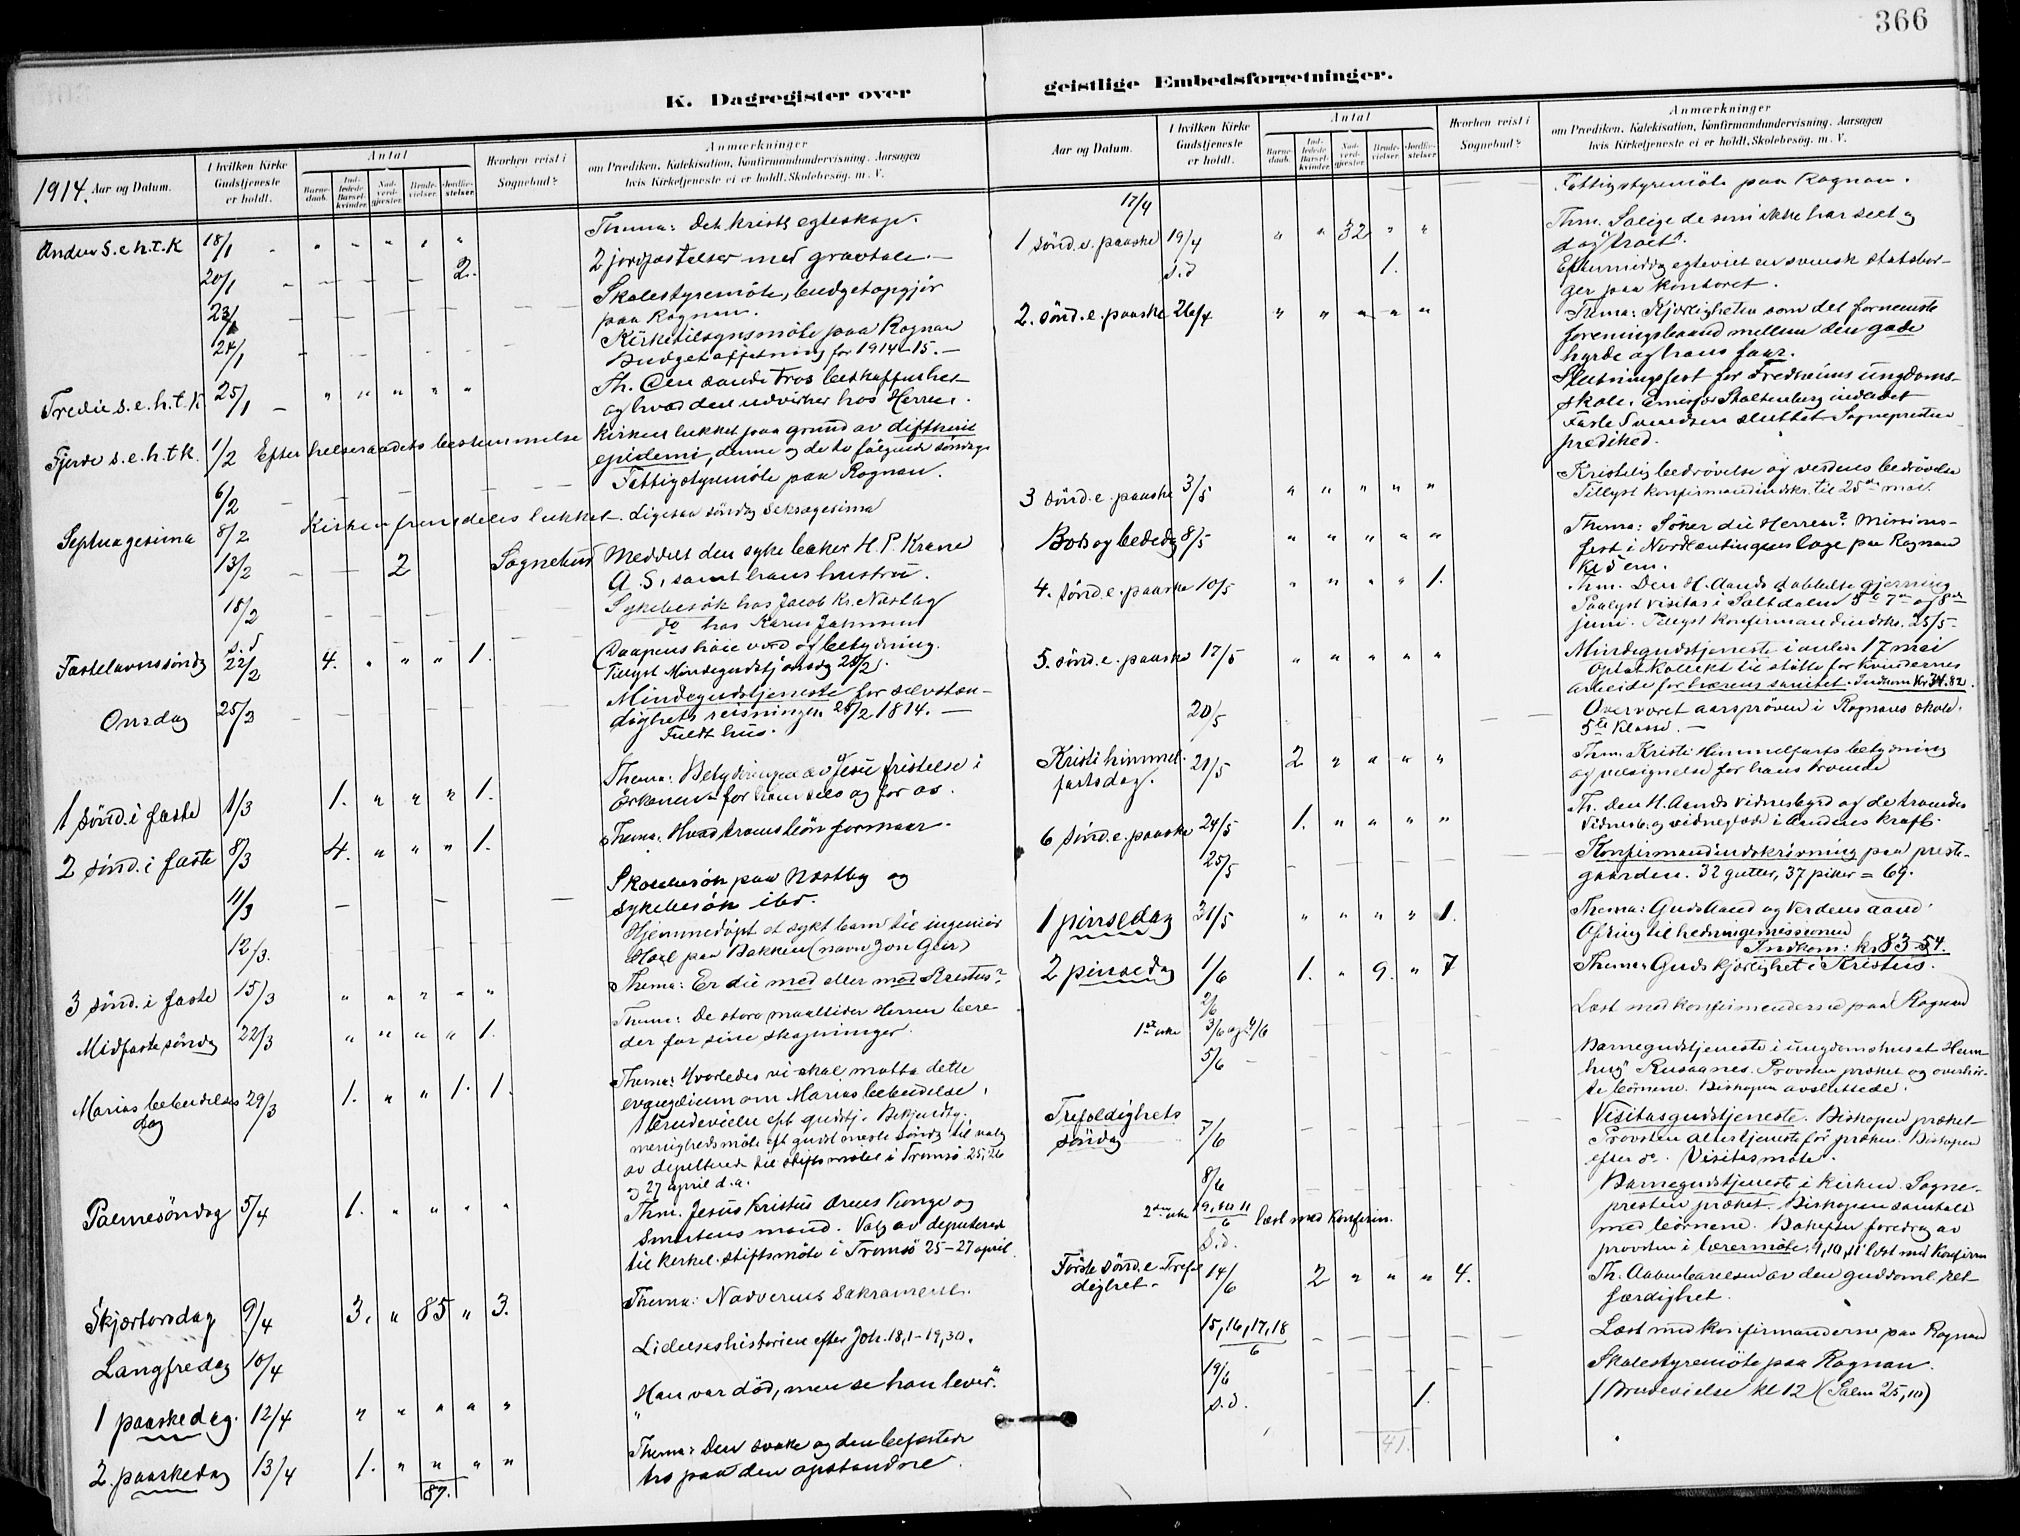 366
K. Dagregister over
geistlige Embedsforretninger.
1914. Aar og Datum.
I hvilken Kirke Gudstjeneste er holdt.
Antal
Barnedaab.
Indledede Barselkvinder.
Nadverdgjester.
Brudevielser.
Jordfæstelser.
Hvorhen reist i Sognebud?
Anmærkninger
om Prædiken, Katekisation, Konfirmandundervisning, Aarsagen
hvis Kirketjeneste ei er holdt, Skolebesøg, m. V.
Anden S. e. h. t. K 18/1 " " " " " Thema: Det kristl. egteskap.
20/1 2. 2 jordfæstelser med gravtale.
23/1 Skolestyremöte, budgetopgjör
paa Rognan.
24/1 Kirketilsynsmöte paa Rognan
Budgetaffatning for 1914-15.
Tredie S. e. h. t. K 25/1 " " " " " Th. Den sande tros beskaffenhet
og hvad den udvirker hos Herren.
Fjerde S. e. h. t. K. 1/2 Efter helseraadets bestemmelse kirken lukket paa grund av difteri
epidemi, denne og de to følgende søndage
6/2 Fattigstyremöte paa Rognan.
Septuagesima 8/2 Kirken fremdeles lukket. Ligesaa söndag Seksagesima
13/2 2 Sognebud Meddelt den syke baker H. P. Krane
A. S., samt hans hustru.
18/2 Sykebesök hos Jacob Kr. Næstby
s.d do hos Karen Jahnsen
Fastelavnssöndag 22/2 4. " " " 1. Daapens höie værd og betydning.
Tillyst Mindegudstj onsdag 25/2.
Onsdag 25/2 Mindegudstjeneste for selvstæn-
dighets reisningen 25/2 1814.
Fuldt hus.
1 sönd. i faste 1/3 1. " " " 1. Thema: Betydningen av Jesu fristelse i
örkenen for ham selv og for os.
2 sönd. i faste 8/3 4. " " " 1. Thema: Hvad troens bön formaar.
11/3 Skolebesök paa Næstby og
sykebesök ibd.
12/3. Hjemmedöpt et sykt barn til ingeniör
Hoel paa Bakken (navn Jon Geir)
3 sönd. i faste 15/3 " " " " " Thema: Er du med eller mod Kristus?
Midfastesöndag 22/3 " " " " 1. Thema: De store maaltider Herren bere-
der for sine skapninger.
Marias bebudelses dag 29/3 1. " " 1. 1. Thema: Hvorledes vi skal motta dette
evangelium om Marias bebudelse.
1 brudevielse eft gudstj. Bekjendtg.
menighedsmöte eft gudst neste söndg til valg
av deputerede til stiftsmötet i Tromsö 25, 26
og 27 april d. a.
Palmesöndag 5/4 1. " " " " Thm. Jesus Kristus Ærens Konge og
Smertens mand. Valg av deputerede
til kirkel. stiftsmöte i Tromsö 25-27 april.
Skjærtorsdag 9/4 3. " 85 " 3. Thema: Nadverens Sakrament.
Langfredag 10/4 Lidelseshistorien efter Joh. 18,1-19,30.
1 paaskedag. 12/4 " " " " " "Han var död, men se han lever".
2. paaskedag 13/4 1. " " " " Thema: Den svake og den befæstede
tro paa den opstandne.
87.
Aar og Datum.
I hvilken Kirke Gudstjeneste er holdt.
Antal
Barnedaab.
Indledede Barselkvinder.
Nadverdgjester.
Brudevielser.
Jordfæstelser.
Hvorhen reist i Sognebud?
Anmærkninger
om Prædiken, Katekisation, Konfirmandundervisning, Aarsagen
hvis Kirketjeneste ei er holdt, Skolebesøg, m. V.
17/4 Fattigstyremöte paa Rognan.
1 sönd. e. paaske 19/4 " " 32 " " Thm. Salige de som ikke har seet og
dog troet.
s.d 1. Eftermiddag egteviet en svensk statsbor-
ger paa kontoret.
2. sönd. e. paaske 26/4 " " " " " Thema: Kjærligheten som det fornemste
foreningsbaand mellem den gode
hyrde og hans faar.
Slutningsfest for Fredheims ungdoms-
skole. Emesfor Stoltenberg indledet
Farle Svendsen sluttet. Sognepresten
prediked.
3 sönd. e. paaske 3/5 " " " " " Kristelig bedrövelse og verdens bedrövelse
Tillyst konfirmandindskr. til 25de mai.
Bots og bededag 8/5 " " " " " Thema: Söker du Herren? Missions-
fest i Nordlændingens loge paa Rognan
Kl 5 em.
4. sönd. e. paaske 10/5 " " " " 1. Thm. Den H. Aands dobbelte gjerning
Paalyst visitas i Saltdalen 5te 7de og 8de
juni. Tillyst Konfirmandindskr. 25/5
5. sönd. e. paaske 17/5 " " " " " Mindegudstjeneste i anled. 17 mai
Optat kollekt til stötte for Kvindernes
arbeide for hærens sanitet. Indkom Kr 34.82.
20/5 Overværet aarspröven i Rognans skole.
5te Klasse.
Kristi himmelfartsdag. 21/5 2 " " " " Thm. Kristi Himmelfarts betydning
og velsignelse for hans troende
6 sönd. e. paaske 24/5 1. " " " " Th. Den H. Aands vidnesbyrd og de troendes
vidnesb. og vidnefærd i Aandens kraft.
25/5 Konfirmandindskrivning paa preste-
gaarden. 32 gutter, 37 piker = 69.
1 pinsedag 31/5 " " " " 1. Thema: Guds Aand og Verdens aand.
Ofring til hedningemissionen
Indkom: kr 83.54.
2 pinsedag 1/6 1. " 9. " 7 Thema: Guds kjærlighet i Kristus.
2/6
1ste uke 3/6 og 4/6 Læst med konfirmanderne paa Rognan
5/6 Barnegudstjeneste i ungdomshuset Heim-
hug Rusaanes. Provsten præket og overhör-
te börnene. Biskopen avsluttede.
Trefoldighets söndag 7/6 Visitasgudstjeneste. Biskopen præket
Provsten altertjeneste för præken. Biskopen
efter do. Visitasmöte.
8/6 Barnegudstjeneste i kirken. Sogne-
presten præket. Biskopen samtalt
med börnene. Bakefter foredrag av
provsten i lærermöte. 9, 10, 11 læst med Konfirm
2den uke 9, 10, 11/6 læst med Konfirm.
s.d.
Förste sönd. e. Trefoldighet. 14/6 2 " " " 4. Th. Aabenbarelsen av den guddoml. ret
færdighet.
15, 16, 17, 18/6 Læst med konfirmanderne paa Rognan
19/6 Skolestyremöte paa Rognan.
s.d. 1. 1 Brudevielse kl 12 (Salm 25,10)
41.